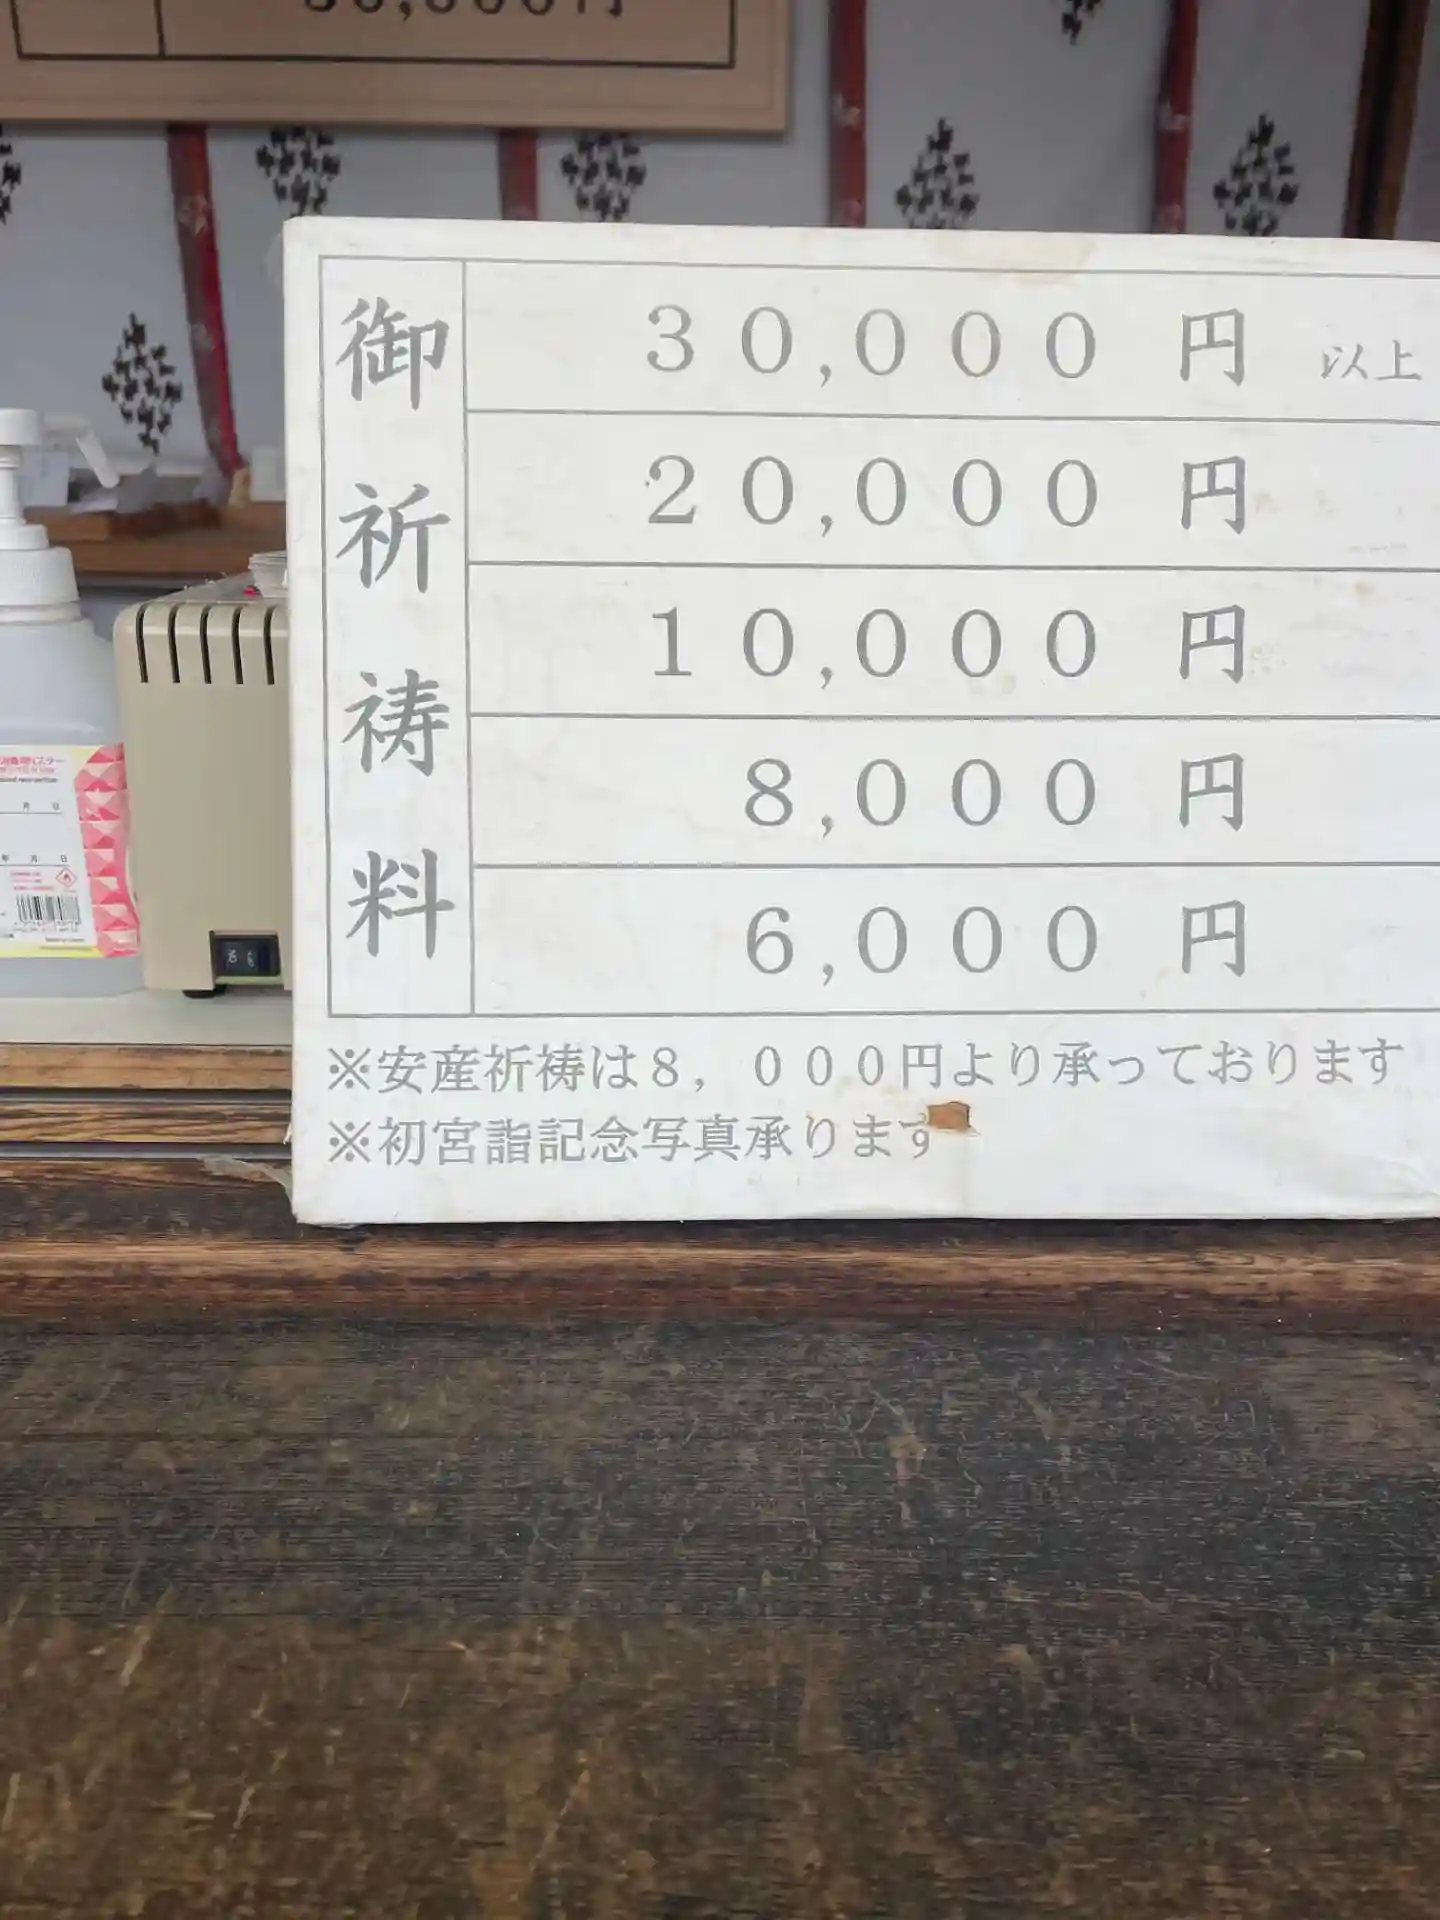 御祈祷料
30,000円 以上
20,000円
10,000円
8,000円
6,000円
※安産祈祷は8,000円より承っております
※初宮詣記念写真承ります
年 月 日